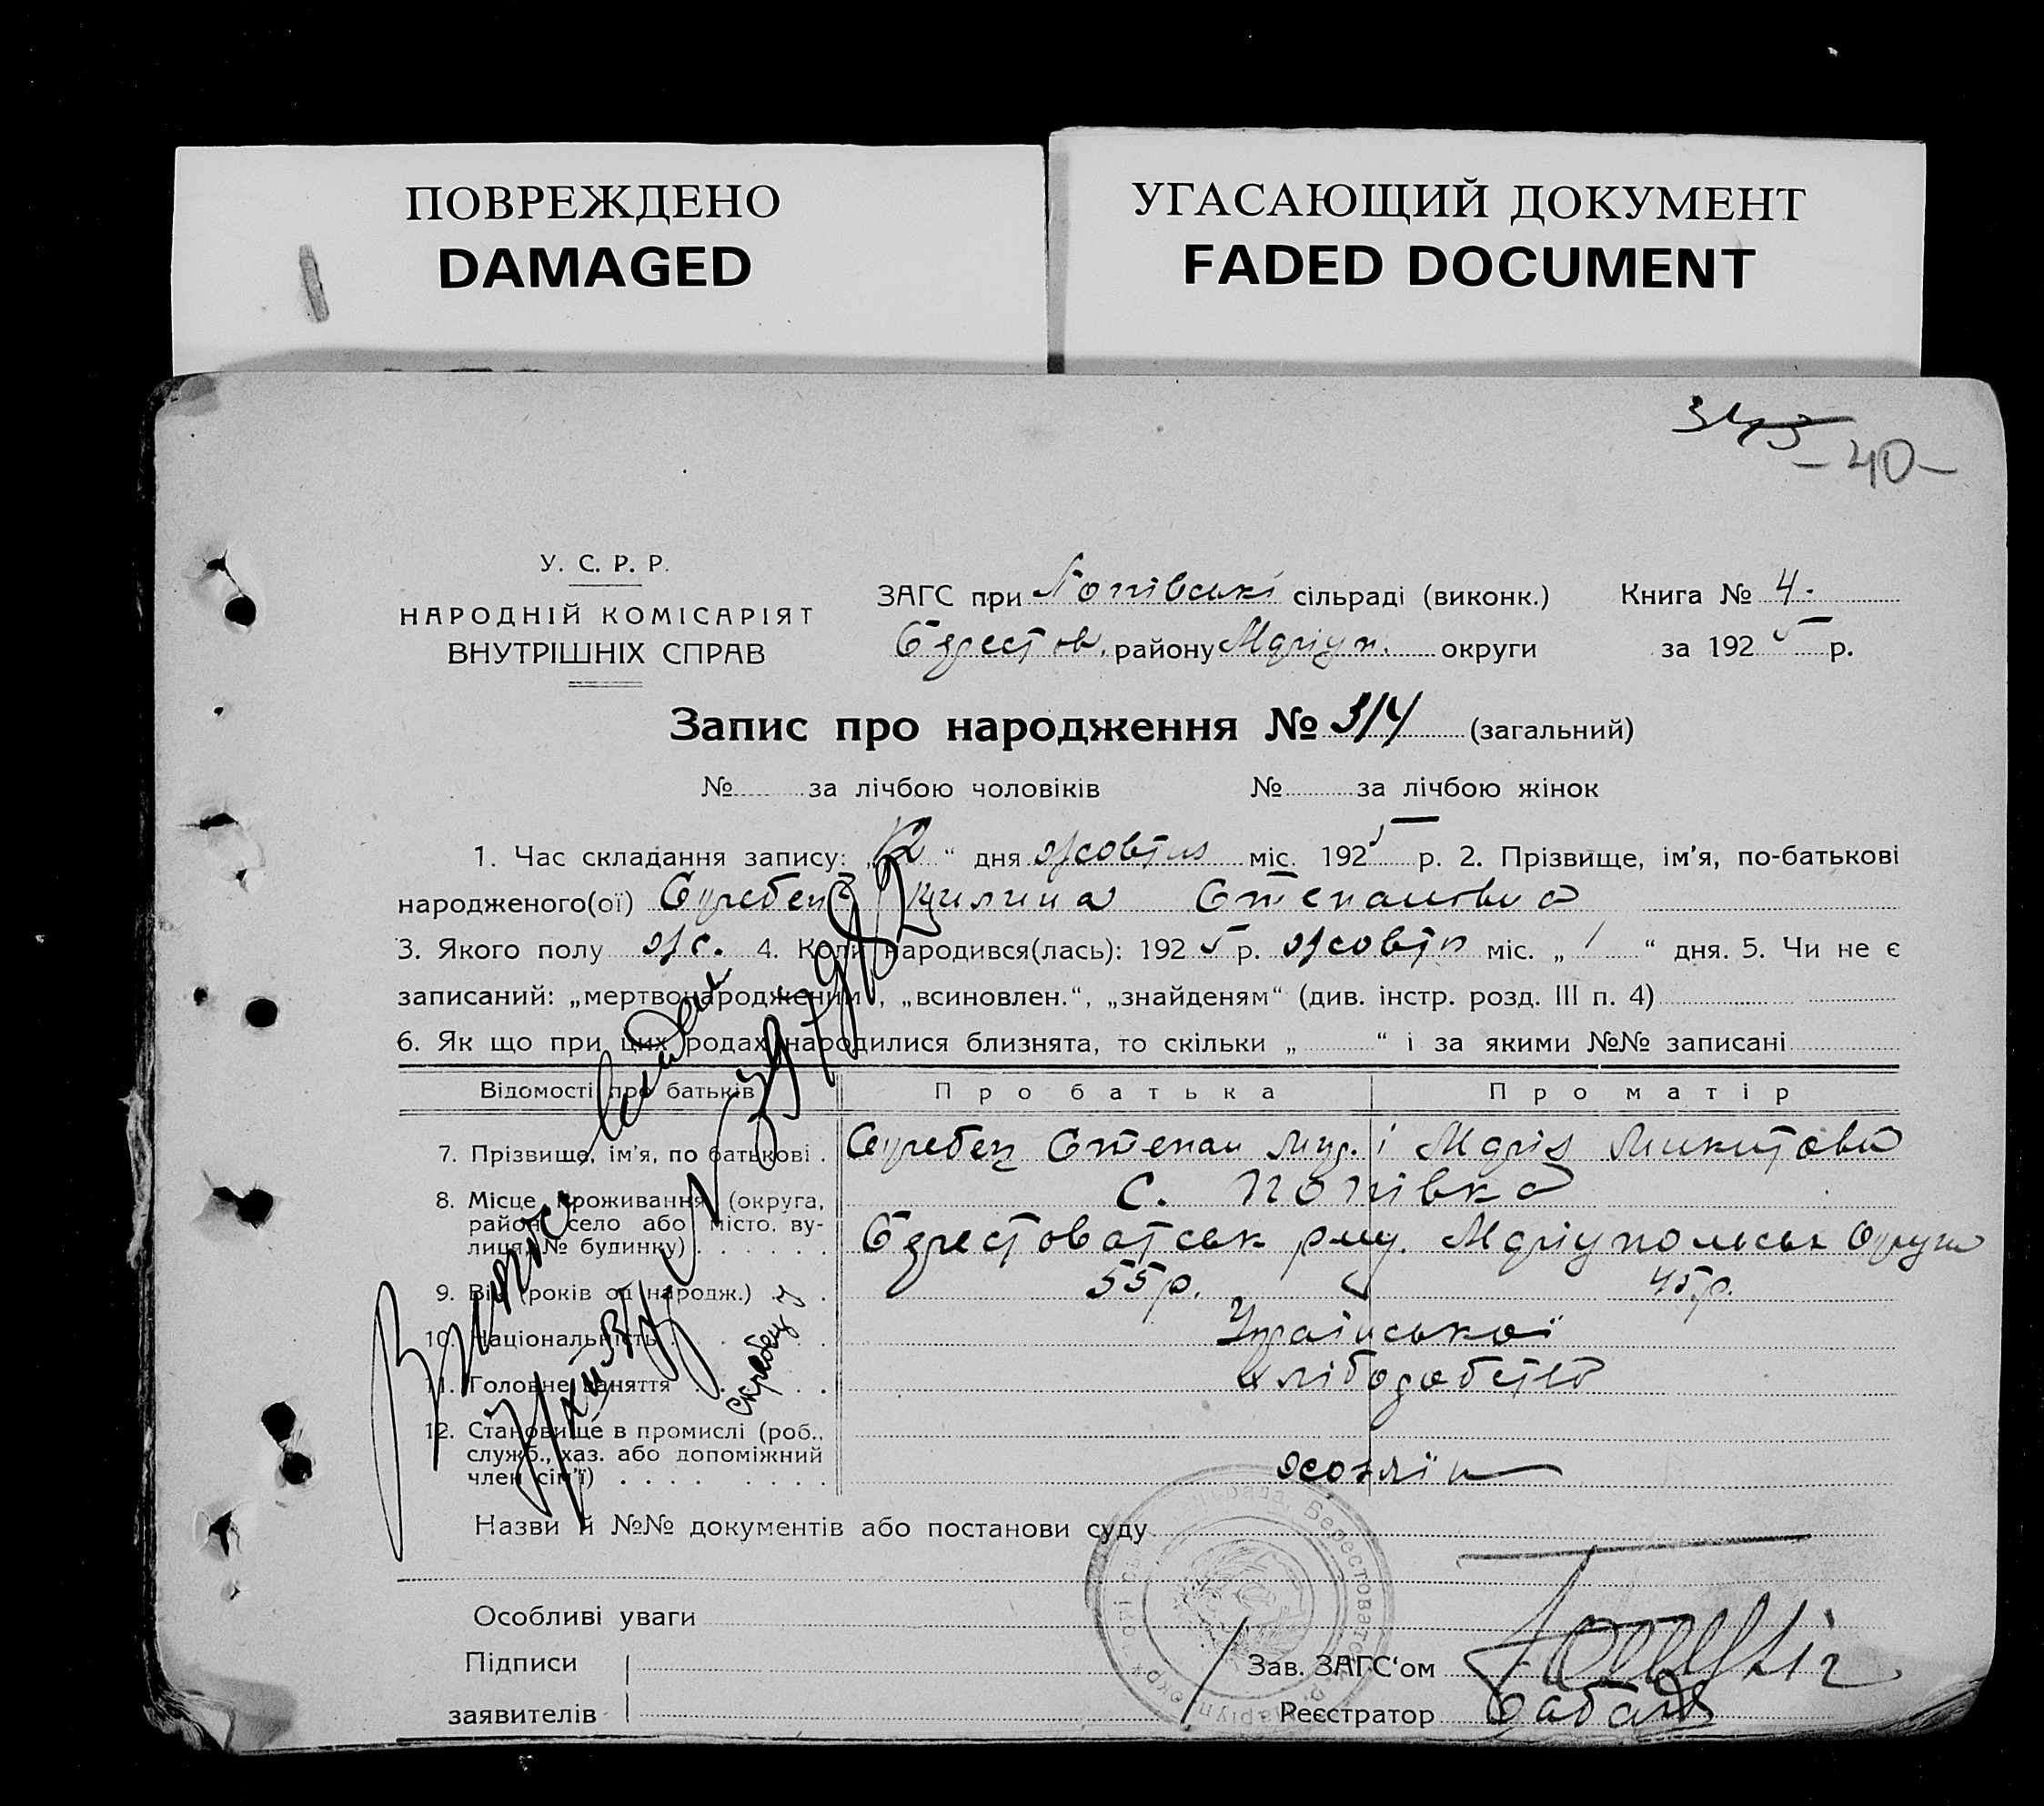 ПОВРЕЖДЕНО
DAMAGED
УГАСАЮЩИЙ ДОКУМЕНТ
FADED DOCUMENT
343
- 40 -
У. С. Р. Р.
НАРОДНІЙ КОМІСАРІЯТ
ВНУТРІШНІХ СПРАВ
ЗАГС при Попівські сільраді (виконк.) Книга № 4.
Берестов. району Маріуп. округи за 1925 р.
Запис про народження № 314 (загальний)
№ за лічбою чоловіків № за лічбою жінок
1. Час складання запису: „12“ дня жовтня міс. 1925 р. 2. Прізвище, ім'я, по-батькові
народженого(ої) Степановна
3. Якого полу ж. 4. Коли народився(лась): 1925 р. жовтн міс. „1“ дня. 5. Чи не є
записаний: „мертвонародженим“, „всиновлен.“, „знайденям“ (див. інстр. розд. III п. 4)
6. Як що при цих родах народилися близнята, то скільки „ “ і за якими №№ записані
Відомості про батьків Про батька Про матір
7. Прізвище, ім'я, по батькові . Степан і Марія Микитовна
8. Місце проживання (округа, район, село або місто. вулиця, № будинку) с. Попівка
Берестоватськ Маріупольськ Округи
9. Вік (років од народж.) 55 р. 45 р.
10. Національність Української
11. Головне заняття хліборобство
12. Становище в промислі (роб., служб., хаз. або допоміжний член сім'ї)
Назви й №№ документів або постанови суду
Особливі уваги
Підписи
заявителів
Зав. ЗАГС'ом
Реєстратор